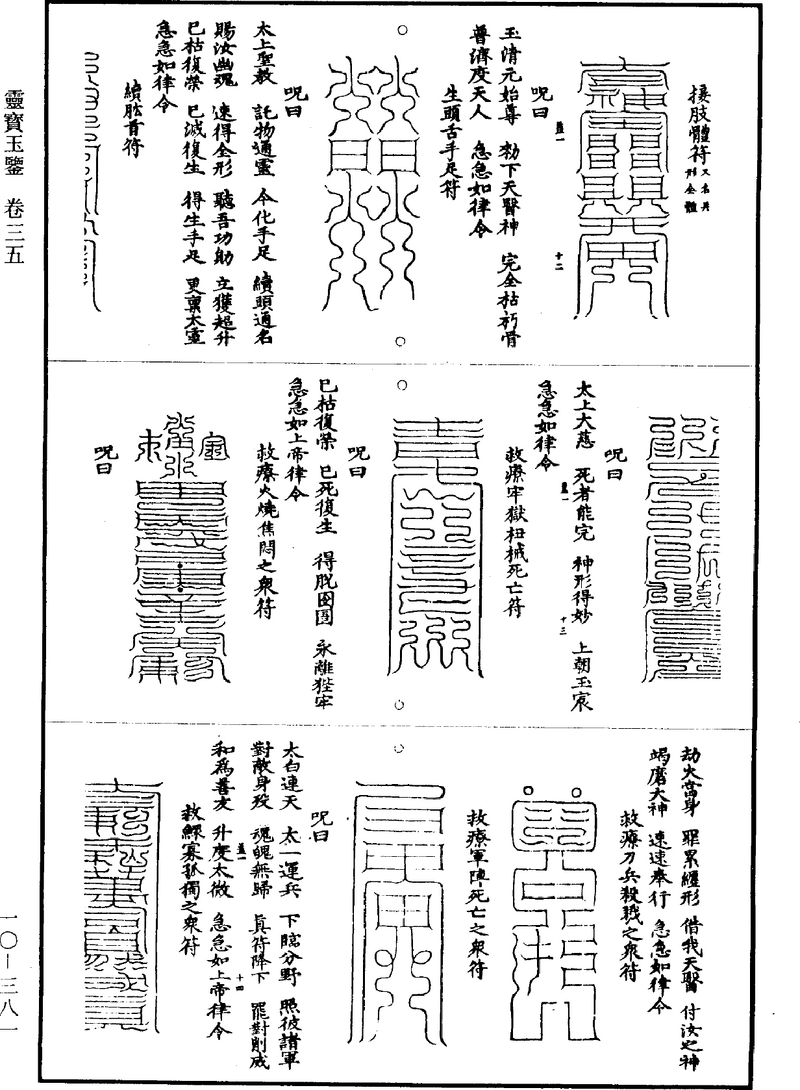 靈寶玉鑒 卷三五
一〇—三八一
接肢體符 又名共形全體
盖一
十二
呪曰
玉清元始尊 勑下天醫神 完全枯朽骨
普濟度天人 急急如律令
生頭舌手足符
呪曰
太上聖教 託物通靈 今化手足 續頭通名
賜汝幽魂 速得全形 聽吾功勛 立獲超升
已枯復榮 已滅復生 得生手足 更稟太靈
急急如律令
續肱首符
呪曰
太上大慈 死者能完 神形得妙 上朝玉宸
急急如律令
盖一
十三
救療牢獄杻械死亡符
呪曰
已枯復榮 已死復生 得脫囹圄 永離狴牢
急急如上帝律令
救療火燒焦悶之衆符
呪曰
劫火當身 罪累纏形 借我天醫 付汝之神
竭磨大神 速速奉行 急急如律令
救療刀兵殺戮之衆符
救療軍陣死亡之衆符
呪曰
太白連天 太一運兵 下臨分野 照彼諸軍
對敵身歿 魂魄無歸 眞符降下 罷對削威
和爲善友 升度太微 急急如上帝律令
盖一
十四
救鰥寡孤獨之衆符